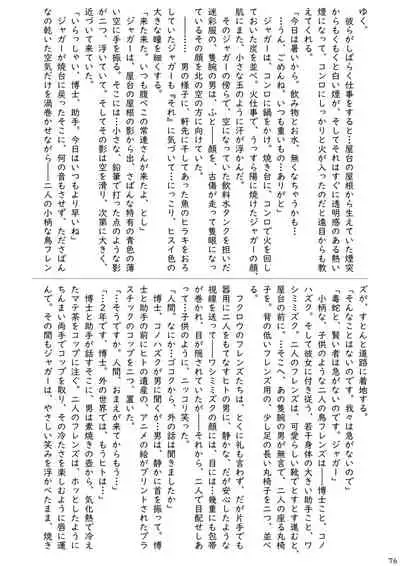 ゆく。
彼らがしばらく仕事をすると…屋台の屋根から生えていた煙突
からもくもくと白い煙が、そしてそれはすぐに透明感のある熱い
煙になって、コンロにしっかりと火が入ったのだと遠目からも教
えてくれる。
「今日は暑いから、飲み物とお水、無くなちゃうかも…
…うん。ごめんね、いつも重いもの…ありがと」
ジャガーは、コンロに鍋をかけ。焼き台に、コンロで火を回し
ておいた炭を並べ。火仕事で、うっすら陽に焼けたジャガーの顔、
肌にまた、小さな玉のように汗が浮かんだ。
そのジャガーの傍らで、空になっていた飲料水タンクを担いだ
迷彩服の、隻腕の男は、ふと――顔を、古傷が走って隻眼になっ
ているその顔を北の空の方に向けていた。
――男の様子に、軒先に干してあった魚のヒラキをおろ
していたジャガーも〝それ〟に気づいて…にっこり、ヒスイ色の
大きな瞳を細める。
「来た来た。いつも腹ぺこの常連さんが来たよ、とし」
ジャガーは、屋台の屋根の影から出、さばんな特有の青色の薄
い空に手を振る。そこには…小さな、鉛筆で打った点のような影
が二つ、浮いていて、そしてその影は空を滑り、次第に大きく、
近づいて来ていた。
「いらっしゃい、博士、助手。今日はいつもより早いね」
ジャガーが焼台に戻ったそこに、何の音もさせず、ただださばん
なの乾いた空気だけを渦巻かせながら――二人の小柄な鳥フレン
ズが、すとんと道路に着地する。
「そんなことはないのです。我々は急がないので」
「毒蛇と、賢い者は急がないのです。ジャガー」
小柄な、子供のような二人の鳥フレンズは――博士こと、コノ
ハズク。そして彼女に付き従う、若干身体の大きい助手こと、ワ
シミミズク。二人のフレンズは、可愛らしい靴でとすとす進むと、
屋台の前に。…そこへ、あの隻腕の男が無言で、二人の座る丸椅
子を、背の低いフレンズ用の、少し足の長い丸椅子を二つ、並べ
る。
フクロウのフレンズたちは、とくに礼も言わず、だが片手でも
器用に二人をもてなすヒトの男に、静かな、だが安心したような
視線を送って――ワシミミズクの顔には、目には…幾重にも包帯
が巻かれ、目が隠されていたが――それから、二人で目配せしあ
って…子供のように、ニッコリ笑った。
「人間。なにか…ブコクから、外の話は聞きましたか」
博士、コノハズクが男に聞く…男は、静かに首を振って、博
士と助手の前にヒトの遺産の、アニメの絵がプリントされたプラ
スチックのコップを二つ、置いた。
「…そうですか。人間、おまえが来てからもう…」
「…２年です、博士。外の世界では、もうヒトは…」
博士と助手が話すそこに、男は素焼きの壺から、気化熱で冷え
たマテ茶をコップに注ぐ。二人のフレンズは、ホッとしたように
ちんまい両手でコップを取り、その冷たさを楽しむように唇に運
んで。その間もジャガーは、やさしい笑みを浮かべたまま、焼き
76